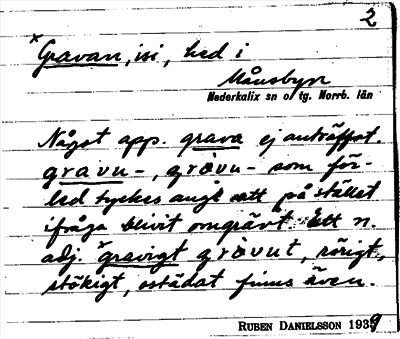 2
*Gravan, isi, hed i
Månsbyn
Nederkalix sn o. tg. Norrb. län
Något app. grava ej anträffat.
gravu-, gròvu- som för-
led tyckes angå att på stället
ifråga blivit omgrävt. Ett n.
adj. gravigt gròvut, rörigt,
stökigt, ostädat finns även.
RUBEN DANIELSSON 1939